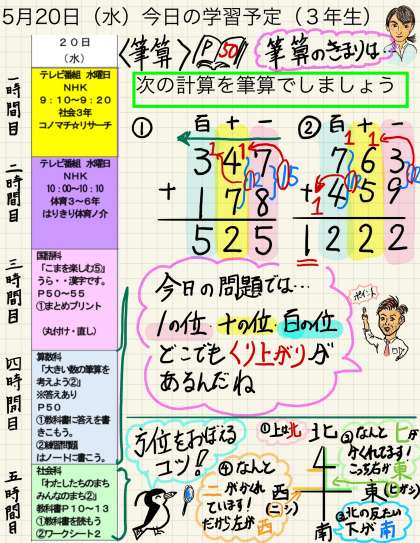 5月20日（水）今日の学習予定（３年生）
２０日
（水）
一時間目
テレビ番組　水曜日
NHK
９：１０～９：２０
社会３年
コノマチ☆リサーチ
二時間目
テレビ番組　水曜日
NHK
10：00～10：10
体育３～６年
はりきり体育ノ介
三時間目
国語科
「こまを楽しむ⑤」
うら・・漢字です。
Ｐ５０～５５
①まとめプリント
（丸付け・直し）
四時間目
算数科
「大きい数の筆算を
考えよう②」
※答えあり
Ｐ５０
①教科書に答えを書
きこもう。
②練習問題
はノートに書こう。
五時間目
社会科
「わたしたちのまち
みんなのまち②」
教科書Ｐ１０～１３
①教科書を読もう
②ワークシート２
〈筆算〉
P
50
筆算のきまりは…
次の計算を筆算でしましょう
①
百 十 一
1 1
3 4 7
12 15
+ 1 7 8
5 2 5
②
百 十 一
1 1
7 6 3
12 12
1
+ 4 5 9
1 2 2 2
今日の問題では…
1の位 十の位 百の位
どこでもくり上がりが
あるんだね
ポイント
方位をおぼえる
コツ!!
①上は北
北
③なんとヒが
かくれてます!
こっち右が東
東(ヒガシ)
④なんと
ニがかくれ
ています!
だから左が西
西
(ニシ)
②北の反たい
下が南
南